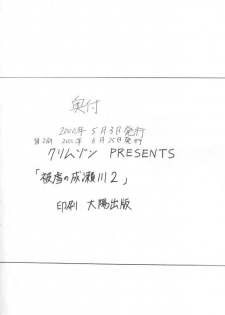 奥付
2002年5月3日発行
第2刷 2002年6月25日発行
クリムゾン PRESENTS
「被虐の成瀬川2」
印刷 大陽出版